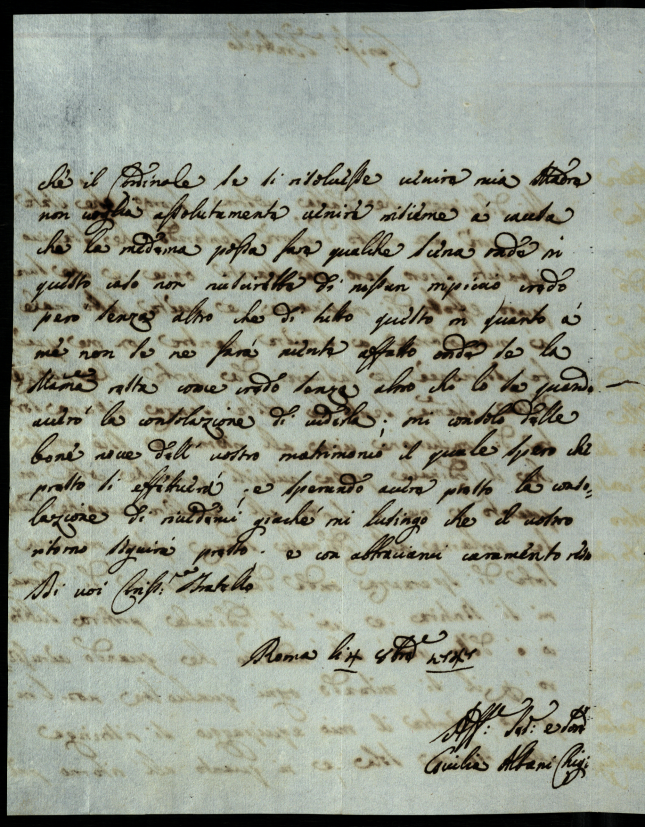 che il Cardinale se si risolvesse venire mia Madre
non voglia assolutamente venire insieme à causa
che la medema possa fare qualche scena onde in
questo caso non riuscirebbe di nessun impiccio credo
però senza altro che di tutto questo in quanto à
mè non se ne farà niente affatto onde se la
Mamè resta come credo senza altro chi lo sa quando
averò la consolazione di vederla; mi consolo delle
bone nove dell' vostro matrimonio il quale spero che
presto si effettuerà, e sperando avere presto la conso=
lazione di rivedervi giache mi lusingo che il vostro
ritorno seguirà presto. e con abbraciarvi caramente resto
Di voi Cariss:mo Fratello
Roma li 4 8bre 1747
Aff:ma e
Giulia Albani Chigi